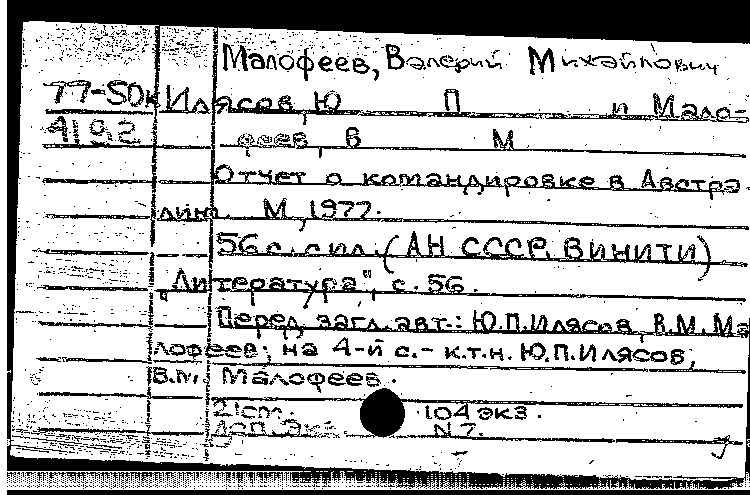 Малофеев, Валерий Михайлович
77-50к Илясов, Ю П и Мало-
4192 феев, В М
Отчет о командировке в Австра
лию. М, 1977.
56 с. с ил. (АН СССР, ВИНИТИ)
"Литература", с. 56.
Перед загл. авт.: Ю.П.Илясов, В.М. Ма
лофеев; на 4-й с.- к.т.н. Ю.П.Илясов,
В.М. Малофеев.
21cm. 104 экз.
N 7.